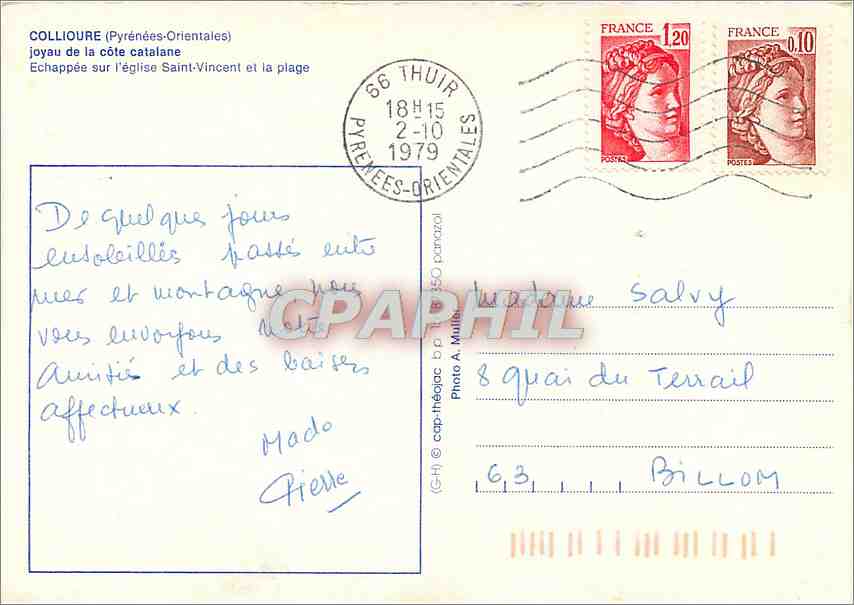 COLLIOURE (Pyrénées-Orientales)
joyau de la côte catalane
Echappée sur l'église Saint-Vincent et la plage
66 THUIR
18H15
2-10
1979
PYRENEES-ORIENTALES
FRANCE
1,20
POSTES
FRANCE
0,10
POSTES
De quelques jours
ensoleillés passés entre
mer et montagne nous
vous envoyons notre
amitié et des baisers
affectueux.
Mado
Pierre
CPAPHIL
(G-H) © cap-théojac b.p. 350 panazol
Photo A. Muller
Madame Salvy
8 Quai du Terrail
63 BILLOM